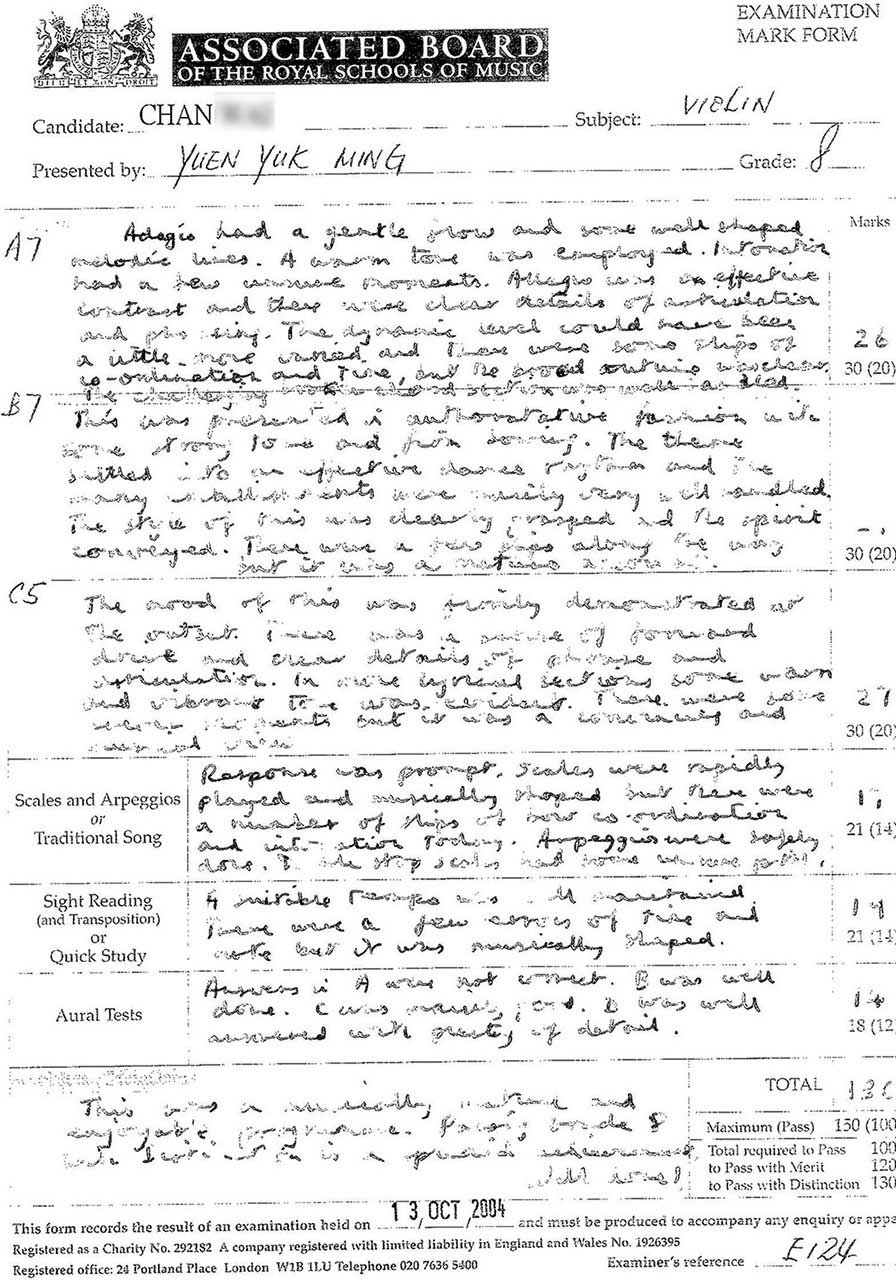 EXAMINATION
MARK FORM
ASSOCIATED BOARD
OF THE ROYAL SCHOOLS OF MUSIC
Candidate: CHAN
Subject: VIOLIN
Presented by: YUEN YUK MING
Grade: 8
Marks
A7
Adagio had a gentle flow and some well shaped
melodic lines. A warm tone was employed. Intonation
had a few unsure moments. Allegro was an effective
contrast and there were clear details of articulation
and phrasing. The dynamic level could have been
a little more varied and there were some slips of
co-ordination and time, but the broad outline was clear.
The challenging chord section was well handled.
26
30 (20)
B7
This was presented in authoritative fashion with
some strong tone and firm bowing. The theme
settled into an effective dance rhythm and the
many embellishments were mainly very well handled.
The style of this was clearly grasped and the spirit
conveyed. There were a few slips along the way
but it was a mature account.
30 (20)
C5
The mood of this was firmly demonstrated at
the outset. There was a sense of forward
drive and clear details of phrase and
articulation. In more lyrical sections some warm
and vibrant tone was evident. There were some
moments but it was a convincing and
musical
27
30 (20)
Scales and Arpeggios
or
Traditional Song
Response was prompt. Scales were rapidly
played and musically shaped but there were
a number of slips of bow co-ordination
and intonation today. Arpeggios were safely
done. Double stop scales had some unsure
21 (14)
Sight Reading
(and Transposition)
or
Quick Study
A suitable tempo was well maintained
There were a few errors of time and
note but it was musically shaped.
19
21 (14)
Aural Tests
Answers in A were not correct. B was well
done. C was mainly good. D was well
answered with plenty of detail.
14
18 (12)
This was a musically mature and
enjoyable programme. Passing Grade 8
with Distinction is a splendid achievement,
Well done!
TOTAL 130
Maximum (Pass) 150 (100
Total required to Pass 100
to Pass with Merit 120
to Pass with Distinction 130
This form records the result of an examination held on 13 OCT 2004 and must be produced to accompany any enquiry or appe
Registered as a Charity No. 292182 A company registered with limited liability in England and Wales No. 1926395
Registered office: 24 Portland Place London W1B 1LU Telephone 020 7636 5400
Examiner's reference E124